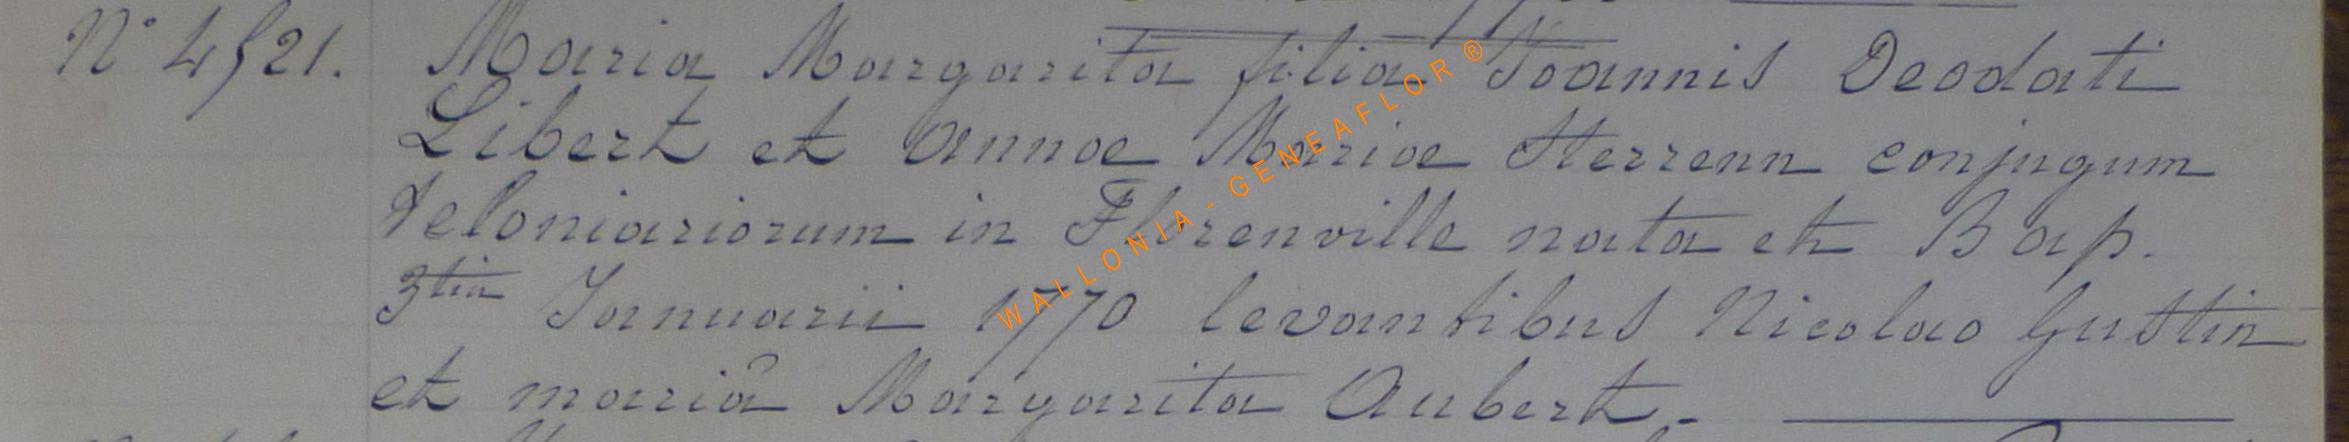 N° 4521. Maria Margarita filia Joannis Deodati
Libert et annae Mariae Sterrenn conjugum
teloniariorum in Florenville nata et Bap.
3tia Januarii 1770 levantibus Nicolao Gustin
et mariâ Margarita Aubert.
WALLONIA - GENEAFLOR ®